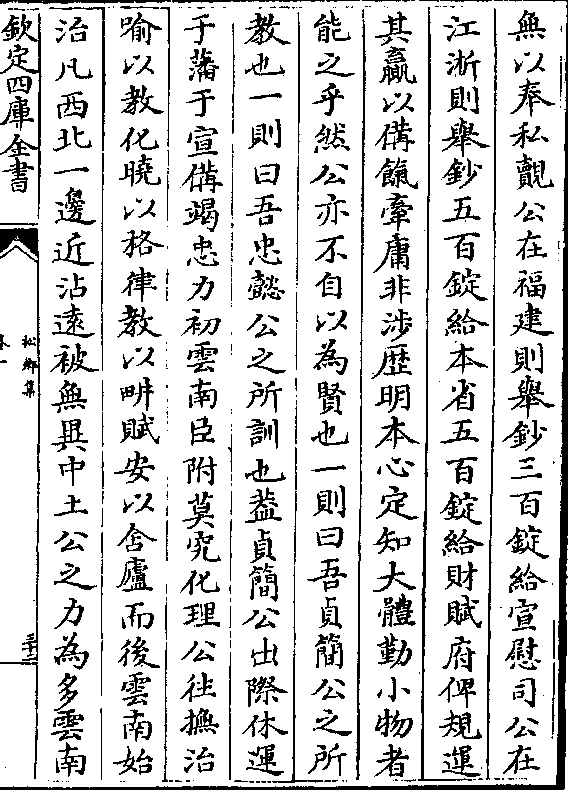 無以奉私覿公在福建則舉鈔三百錠給宣慰司公在
江淅則舉鈔五百錠給本省五百錠給財賦府俾規運
其贏以備餼牽庸非涉歴明本心定知大體勤小物者
能之乎然公亦不自以為賢也一則曰吾貞簡公之所
教也一則曰吾忠懿公之所訓也葢貞簡公出際休運
于藩于宣備竭忠力初雲南臣附莫究化理公徃撫治
喻以教化曉以格律教以畊賦安以舍廬而後雲南始
治凡西北一邊近沾逺被無異中土公之力為多雲南
欽定四庫全書
松鄉集
卷一
三十二